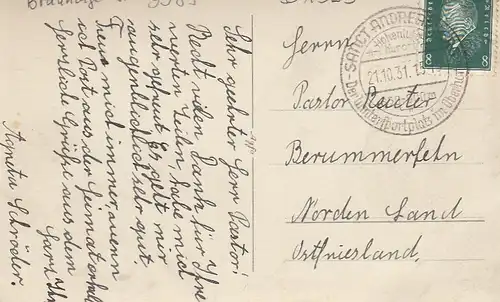 Sehr geehrter Herr Pastor!
Recht vielen Dank für Ihre
werten Zeilen, habe mich
sehr gefreut. Es geht mir
augenblicklich sehr gut.
Freue mich immer, wenn
ich Post aus der Heimat erhalte.
Herzliche Grüße aus dem
Harz Ihre
Agneta Schröder.
Herrn
Pastor Reuter
Berumerfehn
Norden Land
Ostfriesland.
SANCT ANDREASBERG
21.10.31.
Der Wintersportplatz im Oberharz
8 8